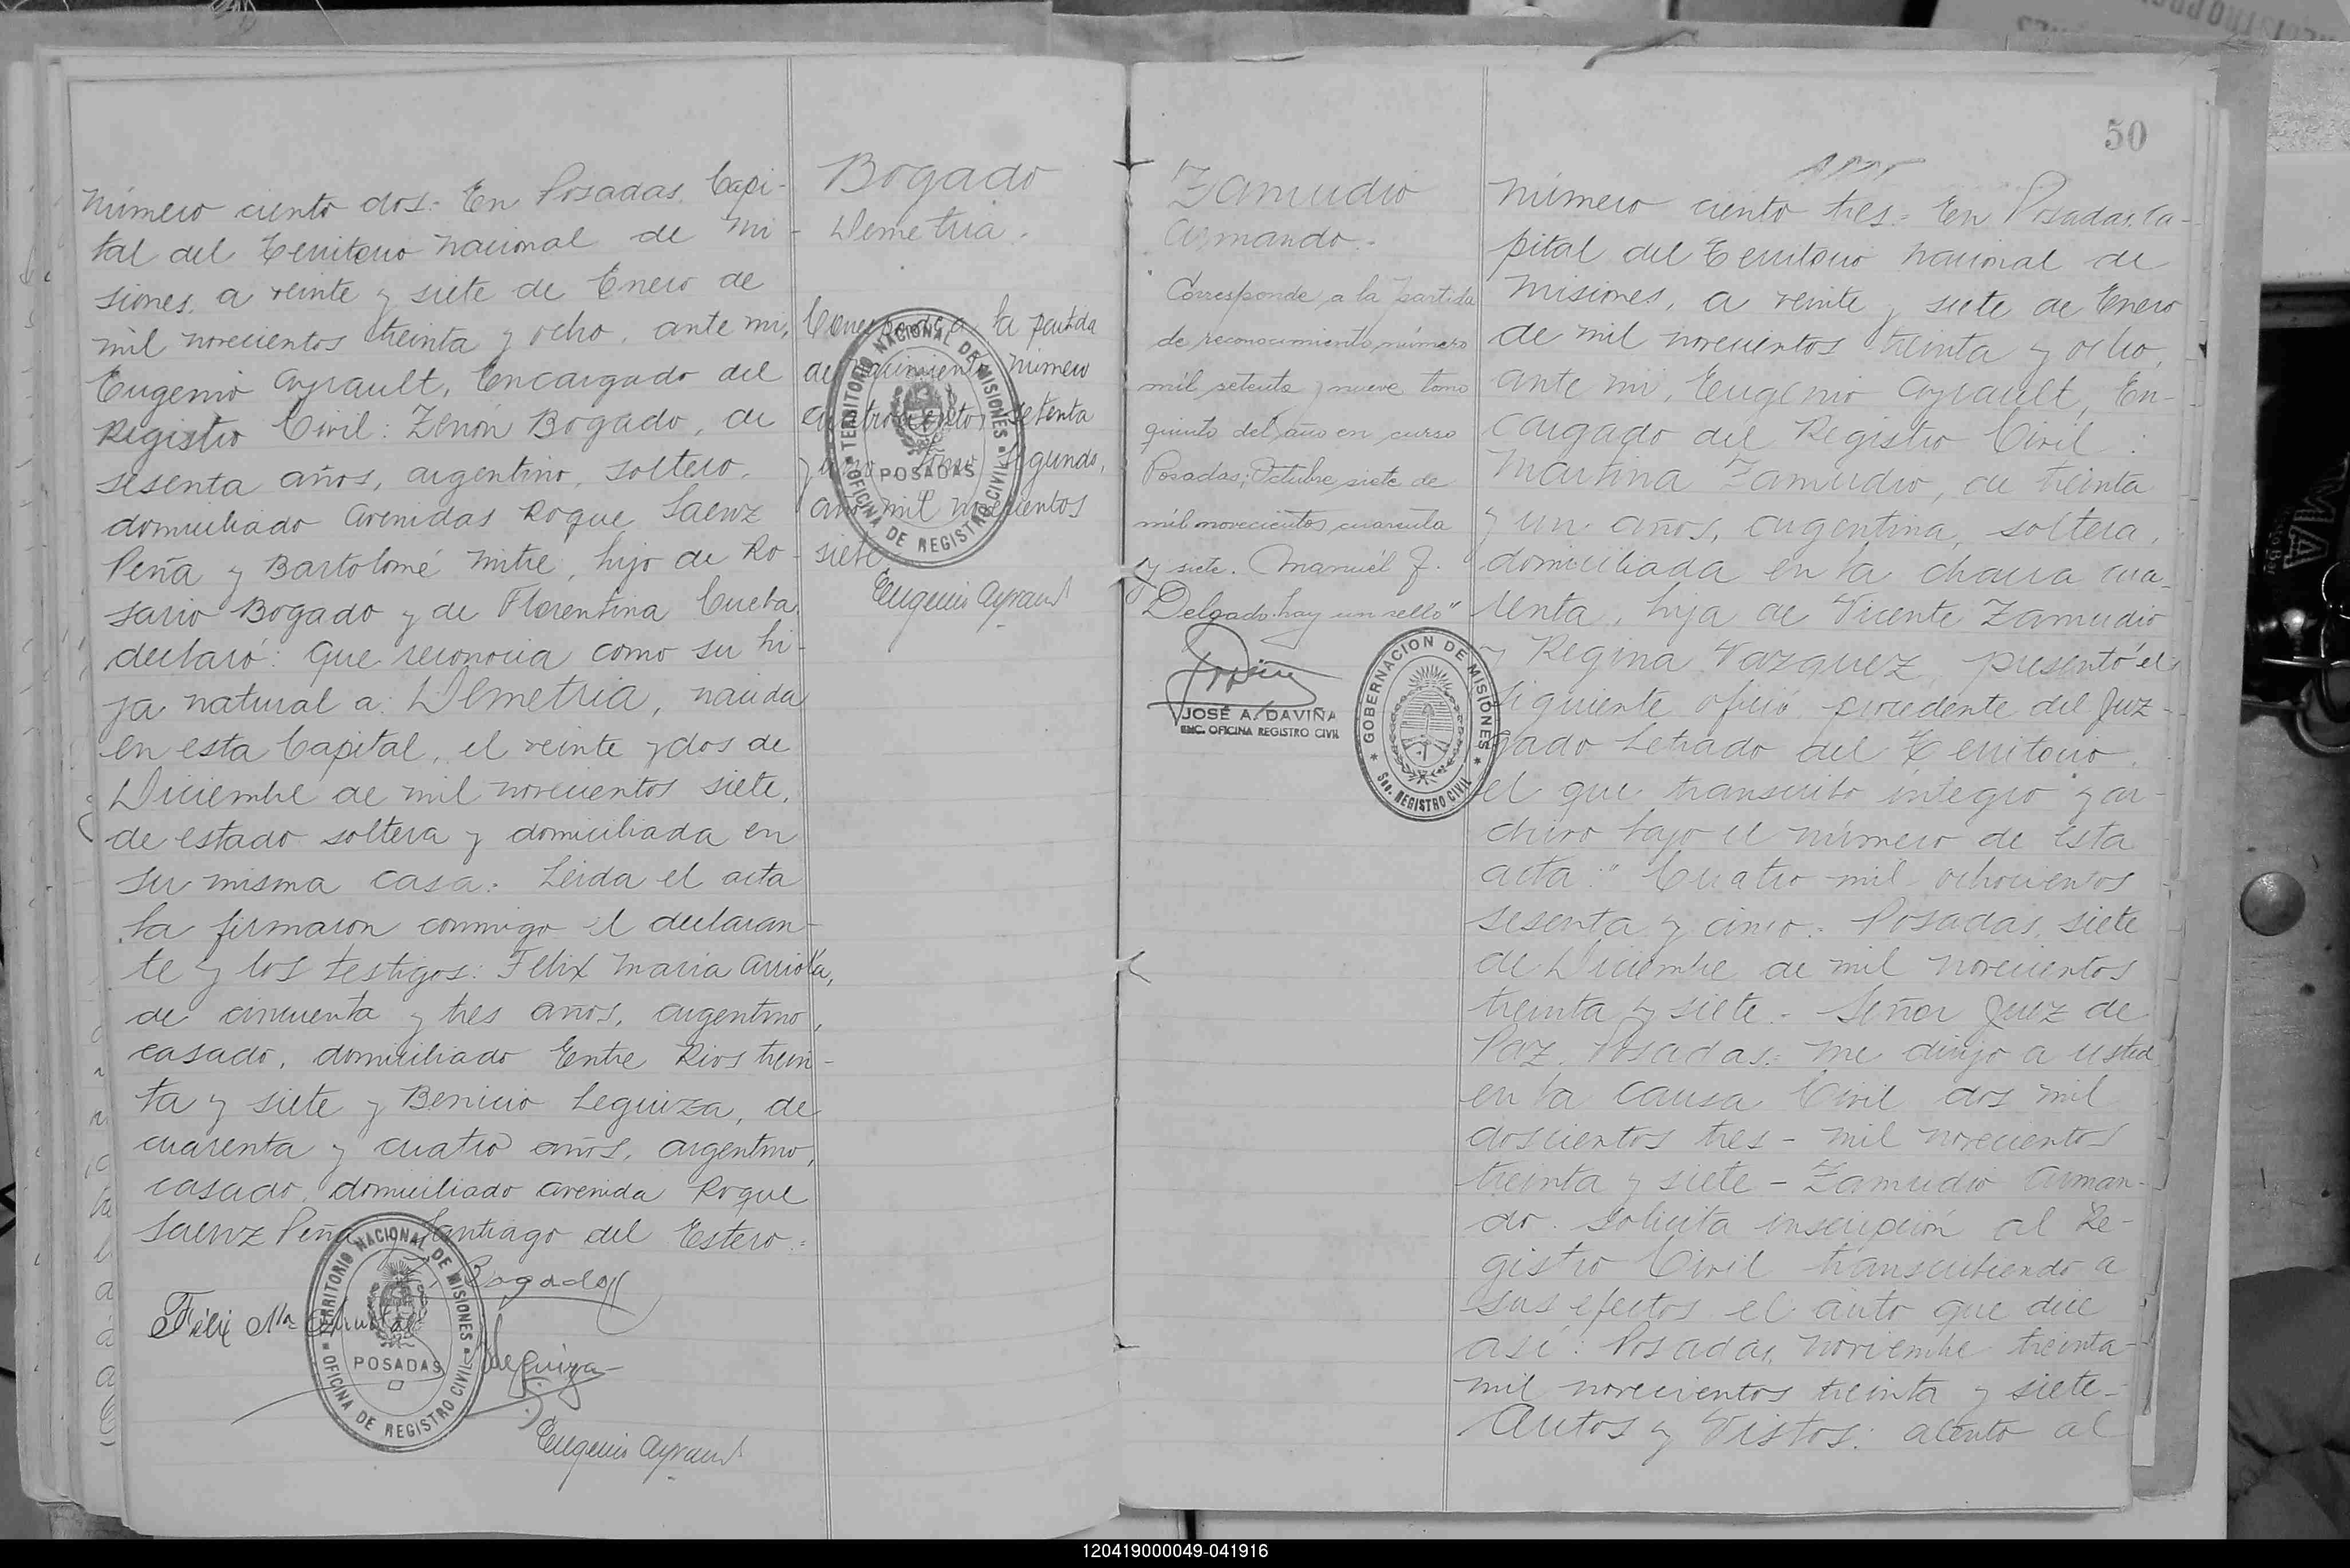 Número ciento dos.- En Posadas, Capi-
tal del Territorio Nacional de Mi-
siones, a veinte y siete de Enero de
mil novecientos treinta y ocho, ante mi,
Eugenio Ayrault, Encargado del
Registro Civil: Zenón Bogado, de
sesenta años, argentino, soltero,
domiciliado Avenidas Roque Saenz
Peña y Bartolomé Mitre, hijo de Ro-
sario Bogado y de Florentina
declaró: Que reconocia como su hi-
ja natural a: Demetria, nacida
en esta Capital, el veinte y dos de
Diciembre de mil novecientos siete,
de estado soltera y domiciliada en
su misma casa.- Leida el acta
la firmaron conmigo el declaran-
te y los testigos: Felix Maria Arriola,
de cincuenta y tres años, argentino,
casado, domiciliado Entre Rios trein-
ta y siete y Benicio Leguiza, de
cuarenta y cuatro años, argentino,
casado, domiciliado avenida Roque
Saenz Peña y Santiago del Estero.=
Z. Bogado
Félix Ma
BLeguiza
Eugenio Ayrault
TERRITORIO NACIONAL DE MISIONES
POSADAS
OFICINA DE REGISTRO CIVIL
Bogado
Demetria.-
Corresponde a la partida
de nacimiento número
cuatrocientos setenta
y uno tomo segundo,
año mil novecientos
siete
Eugenio Ayrault
TERRITORIO NACIONAL DE MISIONES
POSADAS
OFICINA DE REGISTRO CIVIL
Zamudio
Armando.-
"Corresponde a la partida
de reconocimiento número
mil setenta y nueve tomo
quinto del año en curso
Posadas, Octubre siete de
mil novecientos cuarenta
y siete. Manuél J.
Delgado hay un sello"
JOSÉ A. DAVIÑA
ENC. OFICINA REGISTRO CIVIL
GOBERNACION DE MISIONES
Sec. REGISTRO CIVIL
50
Número ciento tres.= En Posadas, Ca-
pital del Territorio Nacional de
Misiones, a veinte y siete de Enero
de mil novecientos treinta y ocho,
ante mi, Eugenio Ayrault, En-
cargado del Registro Civil:
Martina Zamudio, de treinta
y un años, argentina, soltera,
domiciliada en la chacra cua-
renta, hija de Vicente Zamudio
y Regina Vazquez, presentó el
siguiente oficio procedente del Juz-
gado Letrado del Territorio,
el que transcribo integro y ar-
chivo bajo el número de esta
acta: "Cuatro mil ochocientos
sesenta y cinco.- Posadas, siete
de Diciembre de mil novecientos
treinta y siete.- Señor Juez de
Paz, Posadas.- Me dirijo a usted
en la causa Civil dos mil
doscientos tres - mil novecientos
treinta y siete - Zamudio Arman-
do. Solicita inscripción al Re-
gistro Civil transcribiendo a
sus efectos el auto que dice
así: Posadas, noviembre treinta
mil novecientos treinta y siete-
Autos y Vistos: atento al
120419000049-041916